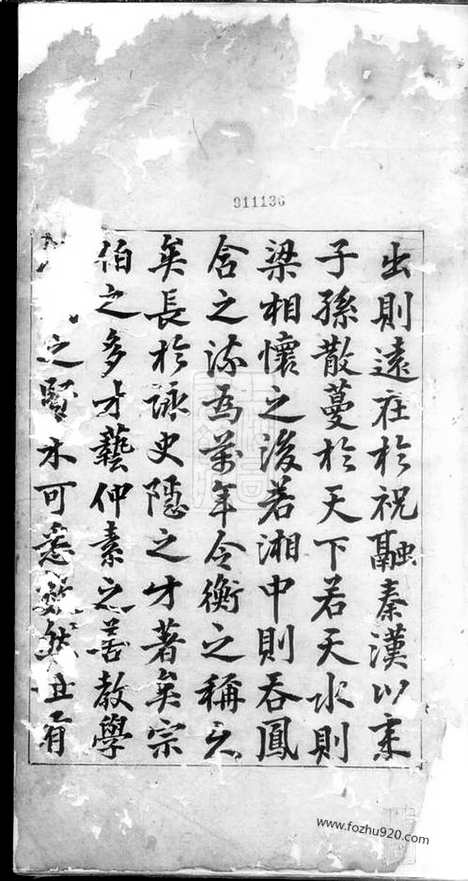 911136
出則遠在於祝融秦漢以来
子孫散蔓於天下若天水則
梁相懷之後若湘中則吞鳳
含之流為萬年令衡之稱之
矣長於詠史隱之才著矣宗
伯之多才藝仲素之善教學
之賢不可悉然且有
www.fozhu920.com